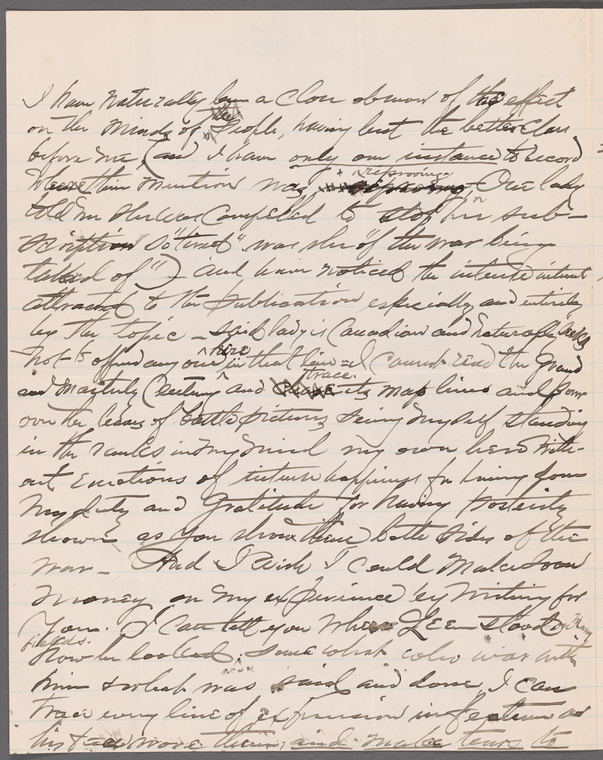 I have naturally been a close observer of the effect
on the minds of the People, having but the better class
before me (and I have only one instance to record
where this mention was reproving One lady
told me she was compelled to stop her sub-
scription so "tired" was she "of the war being
talked of") and have noticed the intense interest
attached to the publication especially and entirely
by the topic – Said lady is Canadian and naturally
not to offend any one here in that line = I cannot read the Grand
and Masterly Century and trace its map lines and pour
over the leaves of battle pictures seeing myself standing
in the ranks in my mind my own hero with-
out emotions of intense happiness for having done
my duty and Gratitude for having posterity
shown as you show them both sides of the
war – And I wish I could make some
money on my experience by writing for
you. I can tell you where Lee stood
how he looked, some what who was with
him & what was said and done I can
trace every line of expression in feature as
his face wore them, and make tears to